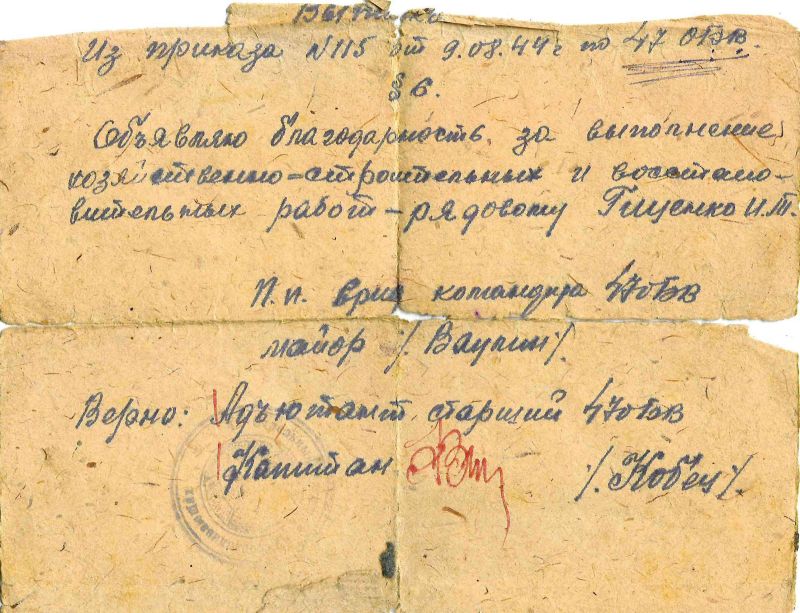 Выписка
Из приказа N 115 от 9.08.44 г по 47 ОБВ.
§ 6.
Объявляю благодарность за выполнение
хозяйственно=строительных и восстано-
вительных работ – рядовому Гищенко И.Т.
П.п. врид командира 47 обв
майор /. Ваулин/.
Верно: Адъютант старший 47 обв
Капитан /. Кобец/.